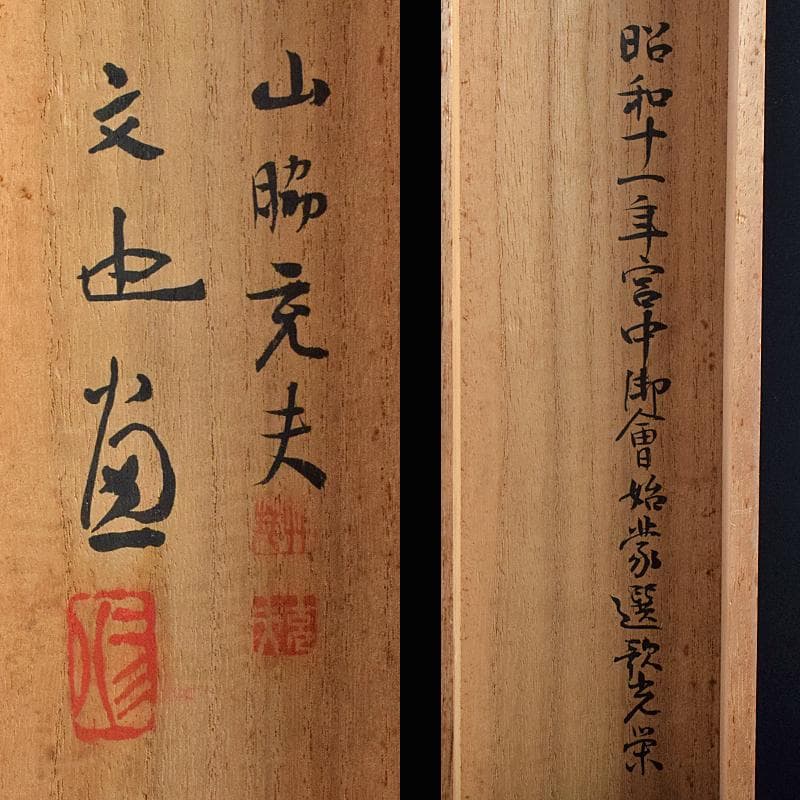 山脇充夫
文也画
昭和十一年宮中御會始蒙選歌光栄